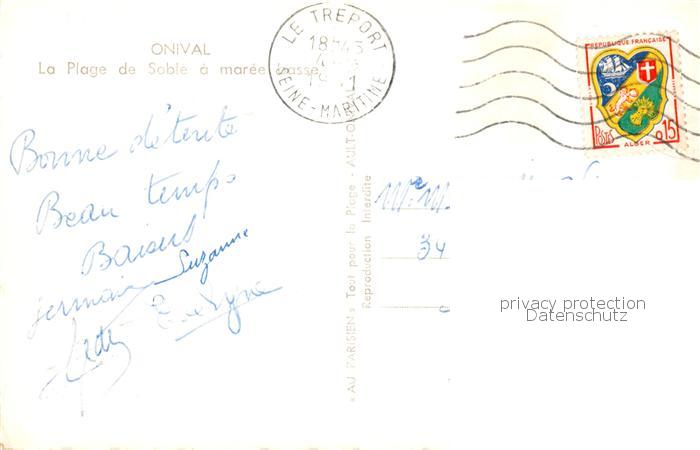 ONIVAL
La Plage de Sable à marée basse
LE TREPORT
18H45
SEINE-MARITIME
REPUBLIQUE FRANÇAISE
POSTES
0,15
ALGER
Bonne détente
Beau temps
Baisers
Suzanne
germaine
Evelyne
« AU PARISIEN » Tout pour la Plage - AULT-O
Reproduction Interdite
34
privacy protection
Datenschutz